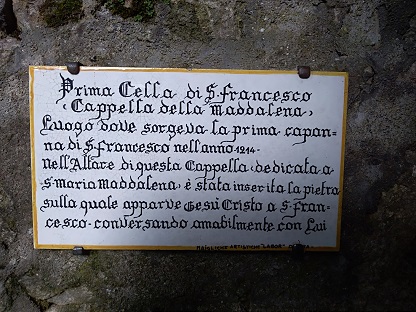 Prima Cella di S. Francesco
(Cappella della Maddalena)
Luogo dove sorgeva la prima capan=
na di S. Francesco nell'anno 1214.
nell'Altare di questa Cappella, dedicata a
S. Maria Maddalena, è stata inserita la pietra
sulla quale apparve Gesù Cristo a S. Fran=
cesco, conversando amabilmente con Lui
MAIOLICHE ARTISTICHE "LABOR"